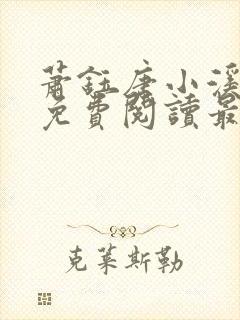 蕭鈺唐小溪
免費閱讀最
克萊斯勒